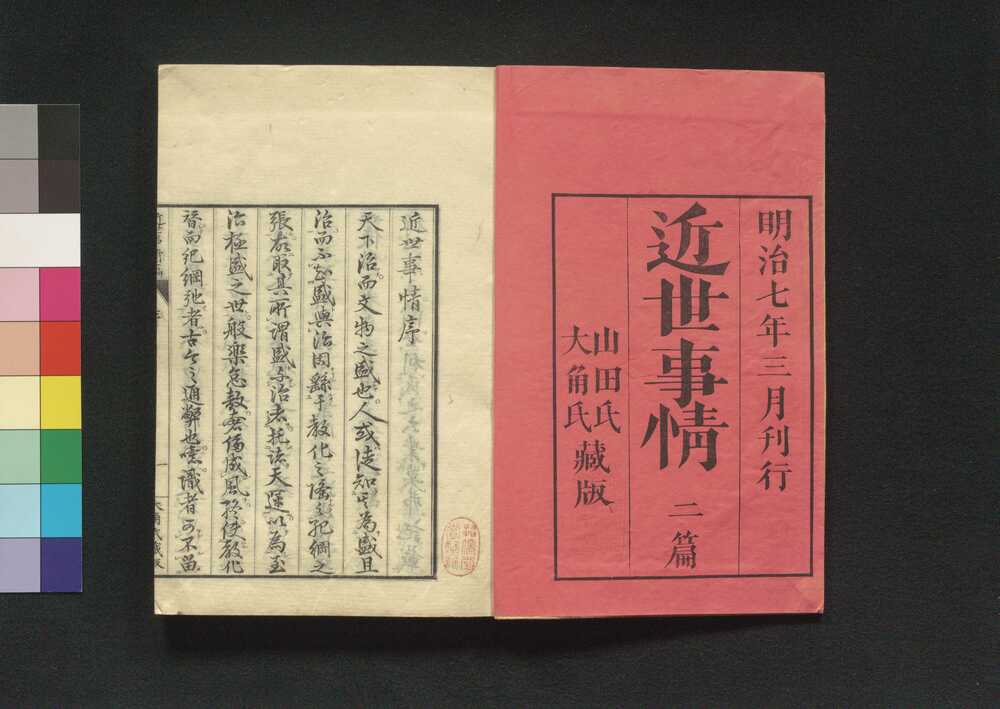 明治七年三月刊行
近世事情 二篇
山田氏
大角氏
藏版
近世事情序
天下治而文物之盛也人或徒知其為盛且
治而不知盛與治因繇于教化之隆與紀綱之
張右取其所謂盛與治者托諸天運以為至
治極盛之世般樂怠敖奢侈成風終使教化
替而紀綱弛者古今之通弊也噫識者可不留
大角氏藏版